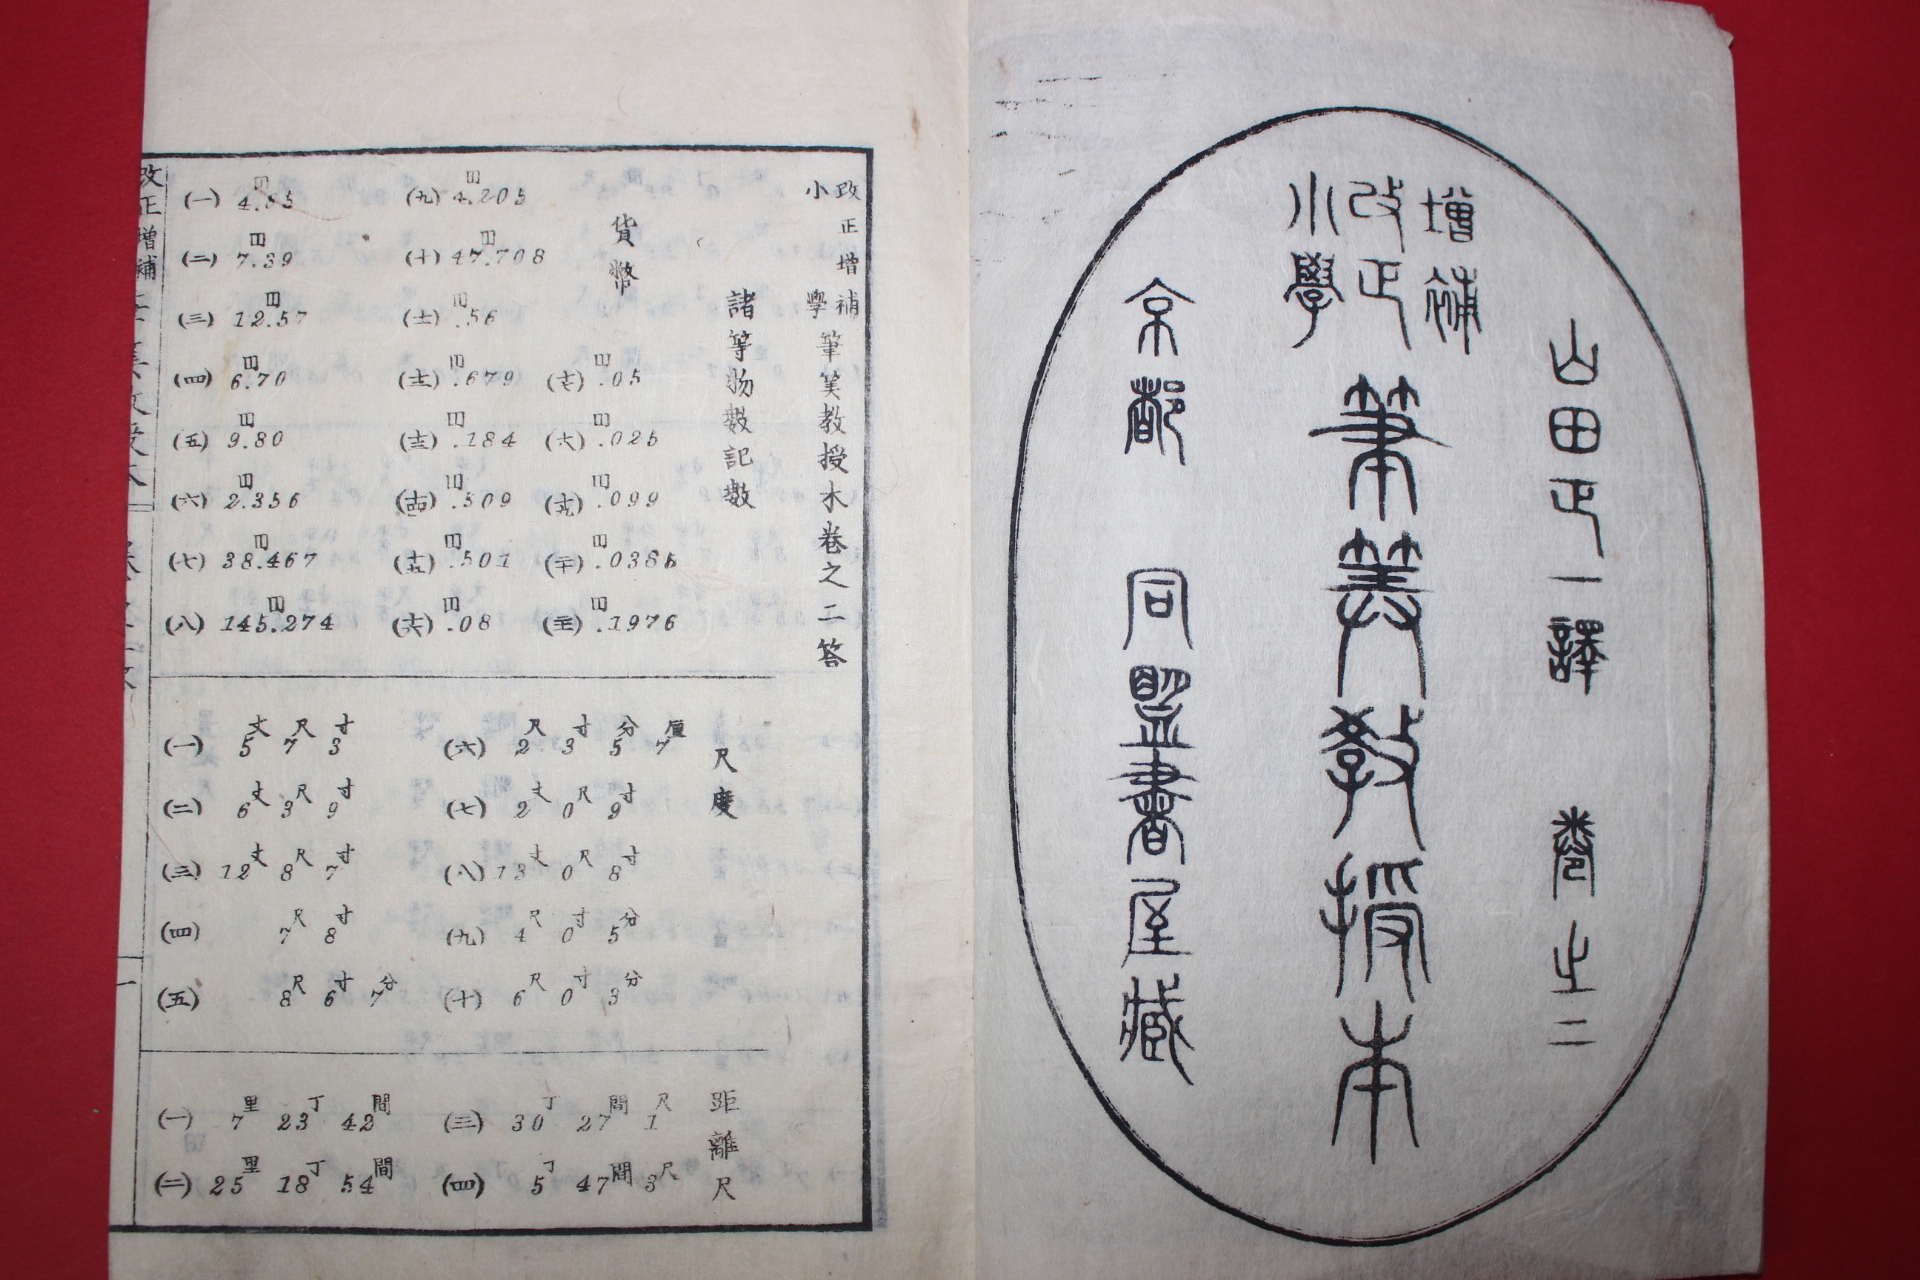 山田正一譯 卷之二
增補
改正
小學
筆筭教授本
京都 同盟書屋藏
改正增補
小學
筆筭教授本卷之二答
諸等物數記數
貨幣
(一) 4.85円 (九) 4.205円
(二) 7.39円 (十) 47.708円
(三) 12.57円 (十一) .56円
(四) 6.70円 (十二) .679円 (十七) .05円
(五) 9.80円 (十三) .184円 (十八) .025円
(六) 2.356円 (十四) .509円 (十九) .099円
(七) 38.467円 (十五) .501円 (二十) .0385円
(八) 145.274円 (十六) .08円 (二十一) .1976円
尺度
(一) 5丈 7尺 3寸 (六) 2尺 3寸 5分 7厘
(二) 6丈 3尺 9寸 (七) 2丈 0尺 9寸
(三) 12丈 8尺 7寸 (八) 13丈 0尺 8寸
(四) 7尺 8寸 (九) 4尺 0寸 5分
(五) 8尺 6寸 7分 (十) 6尺 0寸 3分
距離尺
(一) 7里 23丁 42間 (三) 30丁 27間 1尺
(二) 25里 18丁 54間 (四) 5丁 47間 3尺
改正增補
一